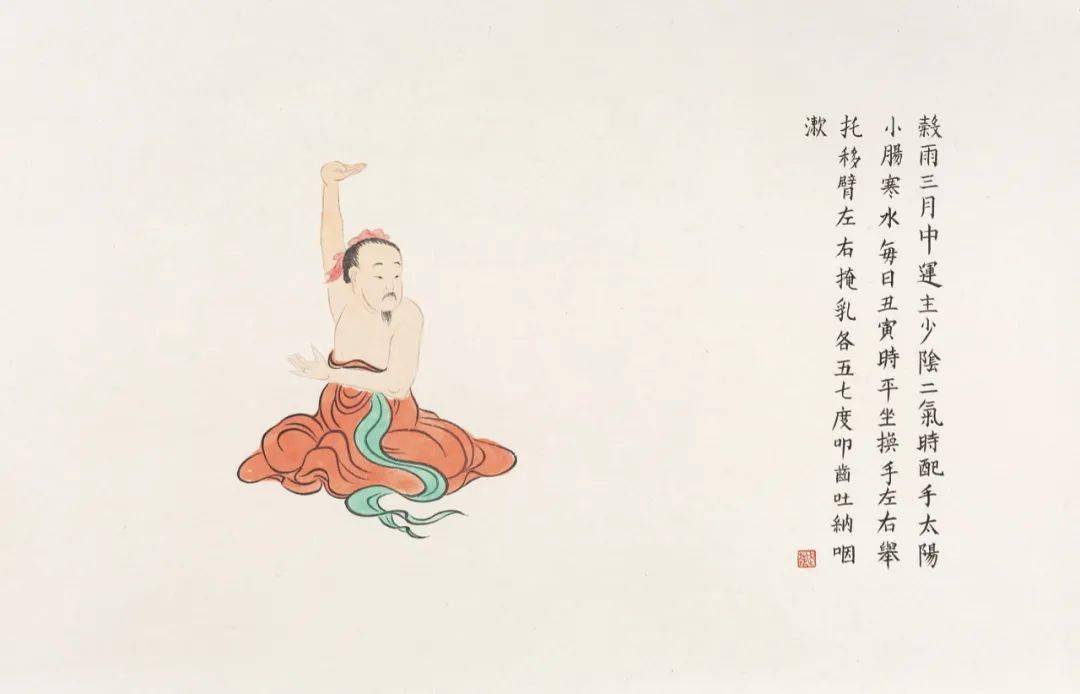 榖雨三月中運主少陰二氣時配手太陽
小腸寒水每日丑寅時平坐換手左右舉
托移臂左右掩乳各五七度叩齒吐納咽
漱